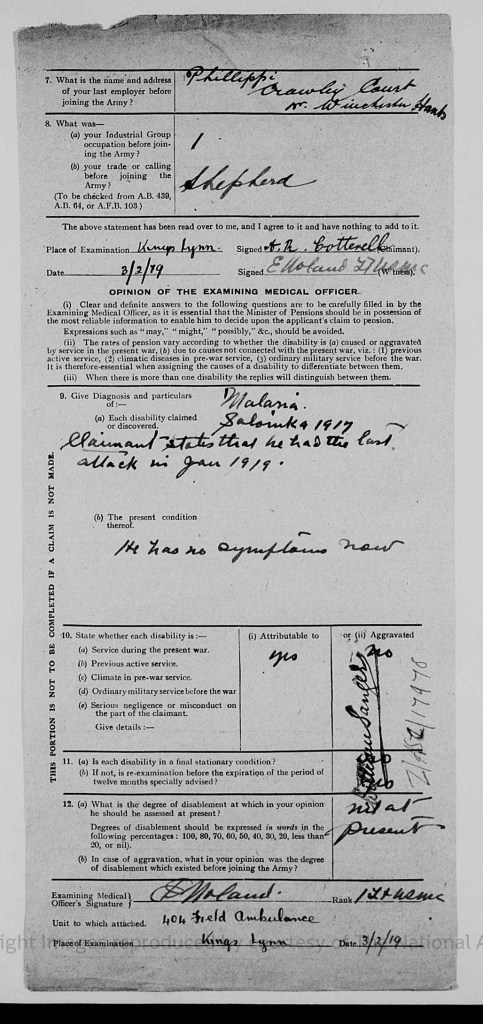 7. What is the name and address Phillippi
of your last employer before Crawley Court
joining the Army? nr. Winchester Hants
8. What was—
(a) your Industrial Group
occupation before join- 1
ing the Army?
(b) your trade or calling
before joining the Shepherd
Army?
(To be checked from A.B. 439,
A.B. 64, or A.F.B. 103)
The above statement has been read over to me, and I agree to it and have nothing to add to it.
Place of Examination Kings Lynn Signed A. R. Cotterell (Claimant).
Date 3/2/19 Signed E Noland (Witness).
OPINION OF THE EXAMINING MEDICAL OFFICER.
(i) Clear and definite answers to the following questions are to be carefully filled in by the
Examining Medical Officer, as it is essential that the Minister of Pensions should be in possession of
the most reliable information to enable him to decide upon the applicant's claim to pension.
Expressions such as "may," "might," "possibly," &c., should be avoided.
(ii) The rates of pension vary according to whether the disability is (a) caused or aggravated
by service in the present war, (b) due to causes not connected with the present war, viz.: (1) previous
active service, (2) climatic diseases in pre-war service, (3) ordinary military service before the war.
It is therefore essential when assigning the causes of a disability to differentiate between them.
(iii) When there is more than one disability the replies will distinguish between them.
THIS PORTION IS NOT TO BE COMPLETED IF A CLAIM IS NOT MADE.
9. Give Diagnosis and particulars
of:— Malaria.
(a) Each disability claimed
or discovered. Salonika 1917
Claimant states that he had the last
attack in Jan 1919.
(b) The present condition
thereof.
He has no symptoms now
10. State whether each disability is :— (i) Attributable to or (ii) Aggravated
(a) Service during the present war. yes no
(b) Previous active service.
(c) Climate in pre-war service.
(d) Ordinary military service before the war
(e) Serious negligence or misconduct on
the part of the claimant.
Give details :—
11. (a) Is each disability in a final stationary condition? no
(b) If not, is re-examination before the expiration of the period of no
twelve months specially advised?
12. (a) What is the degree of disablement at which in your opinion not at
he should be assessed at present? present
Degrees of disablement should be expressed in words in the
following percentages : 100, 80, 70, 60, 50, 40, 30, 20, less than
20, or nil).
(b) In case of aggravation, what in your opinion was the degree
of disablement which existed before joining the Army?
Examining Medical
Officer's Signature E Noland. Rank
Unit to which attached. 404 Field Ambulance
Place of Examination Kings Lynn Date 3/2/19